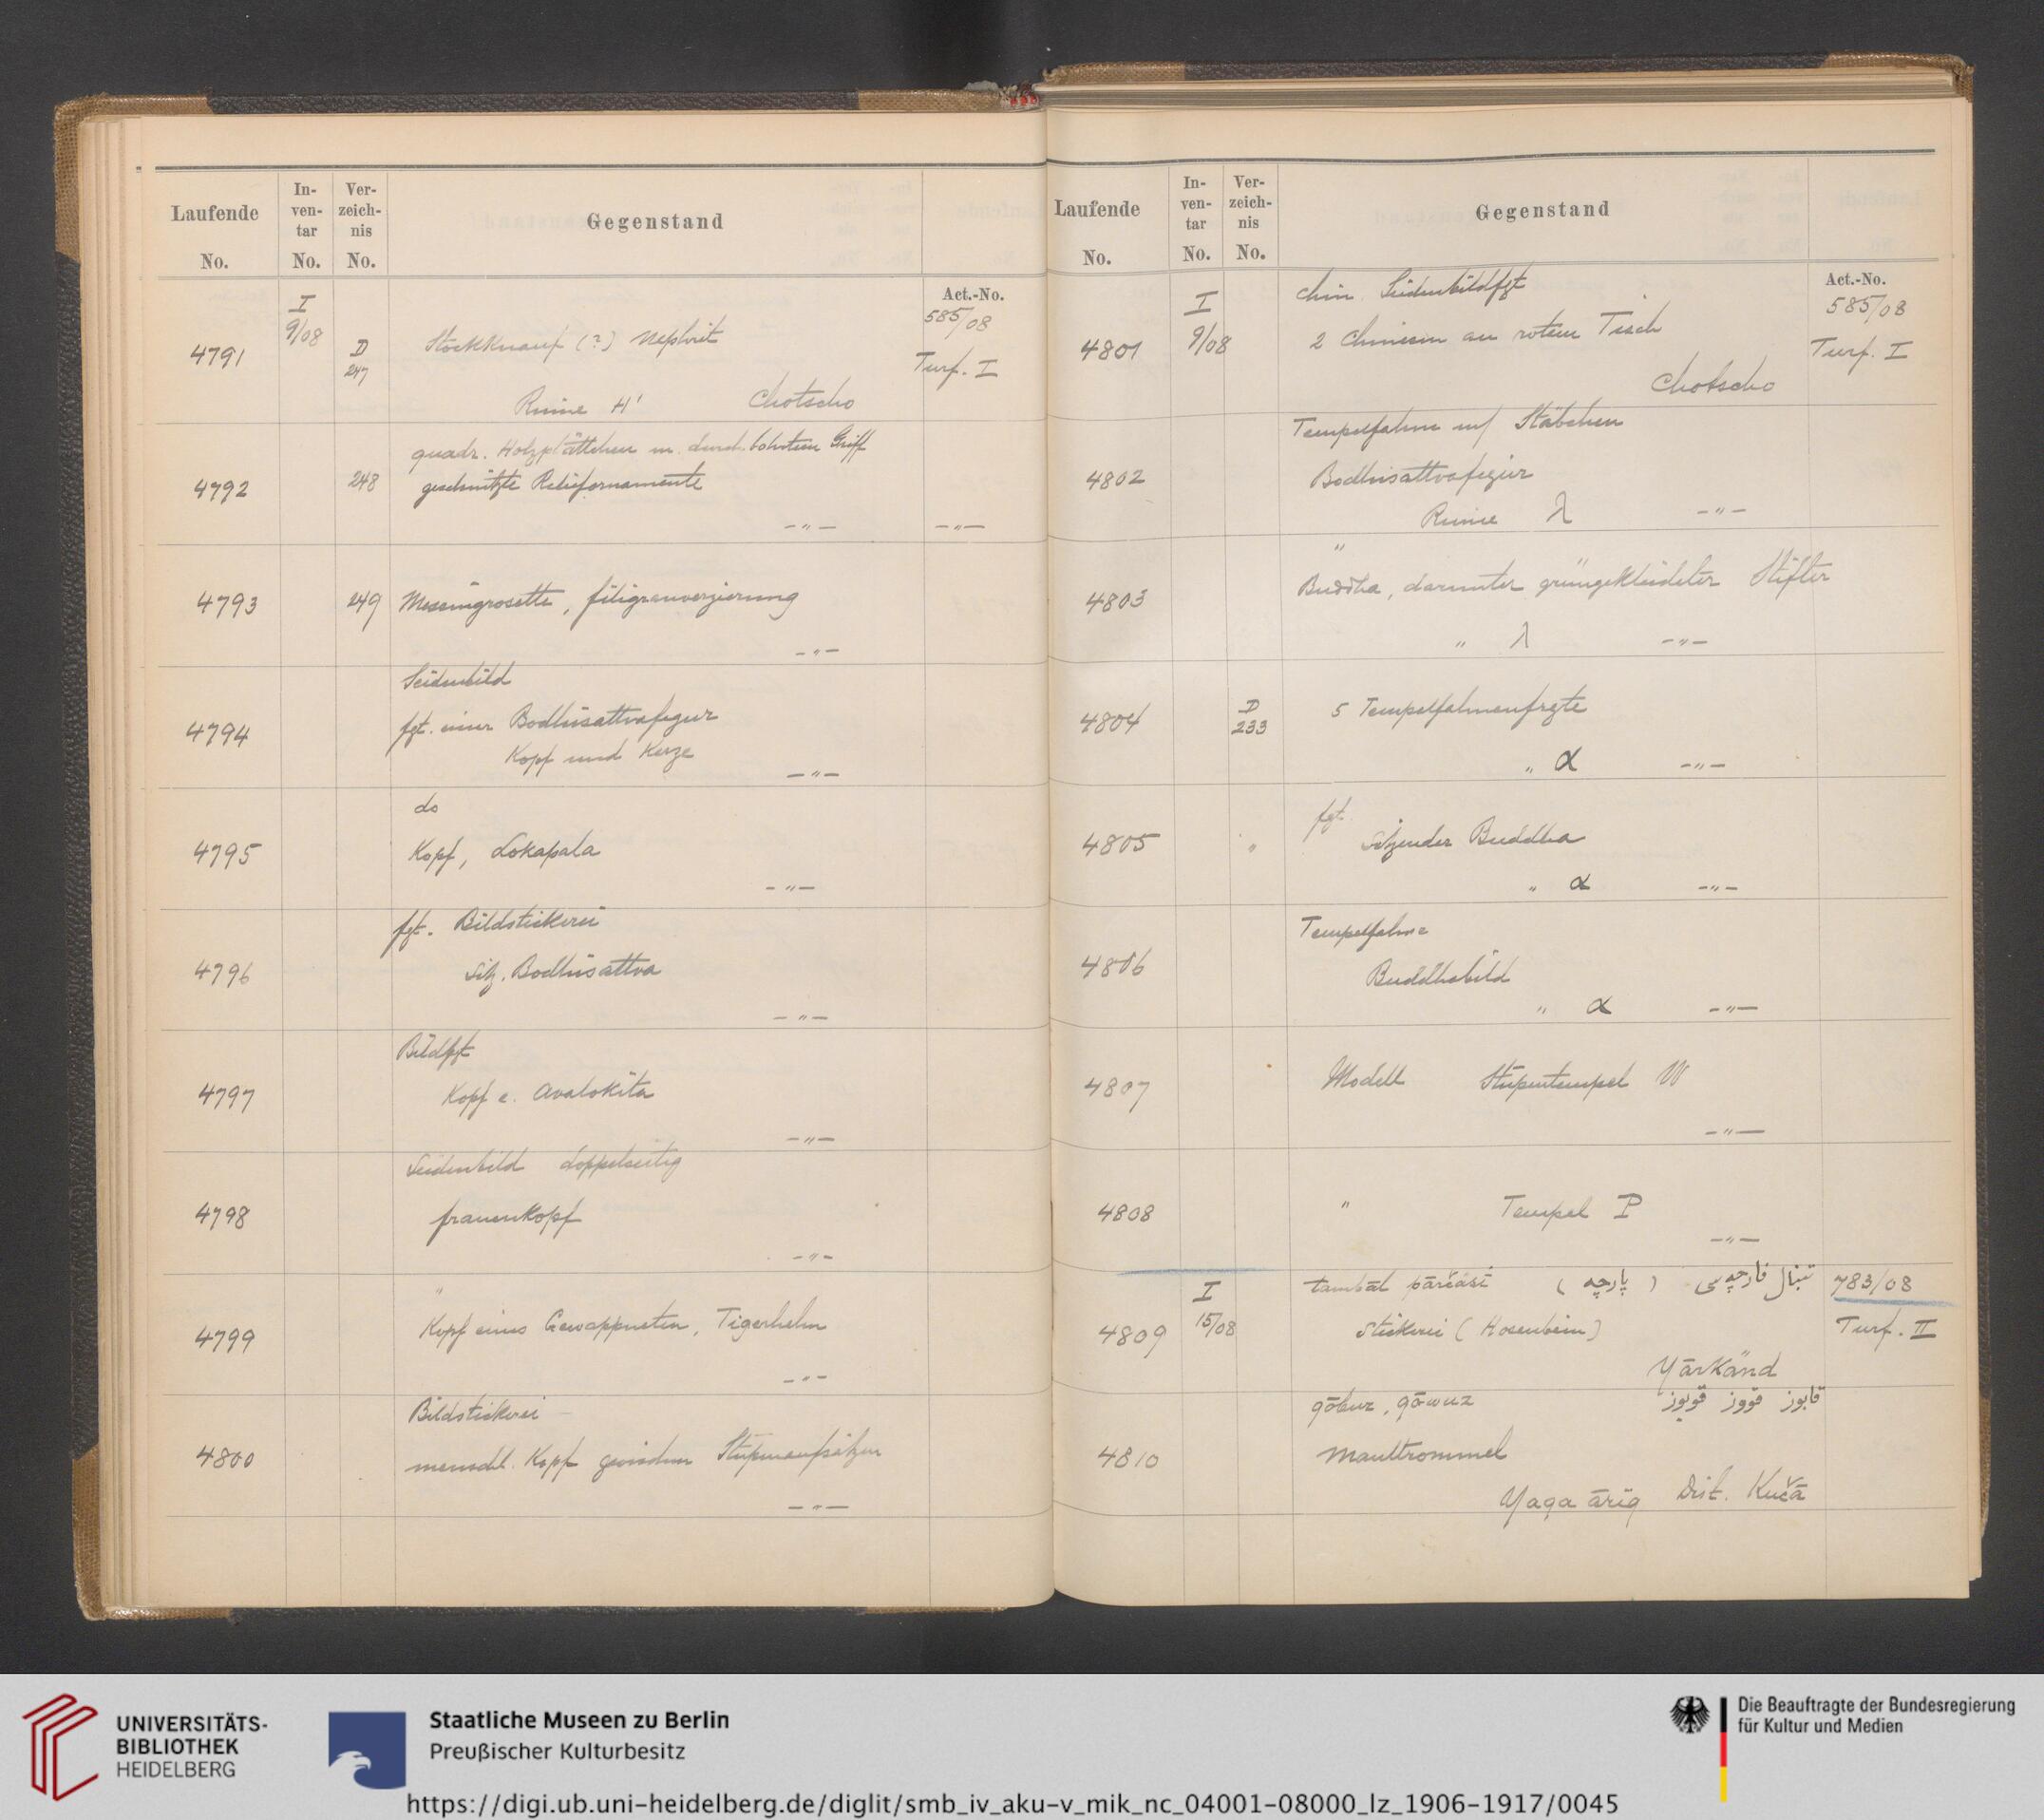 Laufende No.
In-ven-tar No.
Ver-zeich-nis No.
Gegenstand
Act.-No.
4791
I 9/08
D 247
Stockknauf (?) Nephrit
Ruine H' Chotscho
585/08
Turf. I
4792
248
quadr. Holzplättchen m. durchbohrtem Griff
geschnitzte Reliefornamente
-"-
-"-
4793
249
Messingrosette, filigranverzierung
-"-
4794
Seidenbild
fgt. einer Bodhisattvafigur
Kopf und Kerze
-"-
4795
do
Kopf, Lokapala
-"-
4796
fgt. Bildstickerei
sitz. Bodhisattva
-"-
4797
Bildfgt
Kopf e. Avalokita
-"-
4798
Seidenbild doppelseitig
frauenkopf
-"-
4799
"
Kopf eines Gewappneten, Tigerhelm
-"-
4800
Bildstickerei
menschl. Kopf zwischen Stupenaufsätzen
-"-
Laufende No.
In-ven-tar No.
Ver-zeich-nis No.
Gegenstand
Act.-No.
4801
I 9/08
chin. Seidenbildfgt
2 Chinesen an rotem Tisch
Chotscho
585/08
Turf. I
4802
Tempelfahne m/ Stäbchen
Bodhisattvafigur
Ruine λ -"-
4803
"
Buddha, darunter grüngekleideter Stifter
" λ -"-
4804
D 233
5 Tempelfahnenfrgte
" α -"-
4805
"
fgt.
sitzender Buddha
" α -"-
4806
Tempelfahne
Buddhabild
" α -"-
4807
Modell Stupentempel W
-"-
4808
" Tempel P
-"-
4809
I 15/08
tambāl pārčasi ( پارچه ) تنبال فارچه سی
Stickerei (Hosenbein)
Yārkänd
783/08
Turf. II
4810
qōbuz, qāwuz قابوز قووز قوبوز
Maultrommel
Yaqa āriq Dist. Kučā
UNIVERSITÄTS-
BIBLIOTHEK
HEIDELBERG
Staatliche Museen zu Berlin
Preußischer Kulturbesitz
Die Beauftragte der Bundesregierung
für Kultur und Medien
https://digi.ub.uni-heidelberg.de/diglit/smb_iv_aku-v_mik_nc_04001-08000_lz_1906-1917/0045